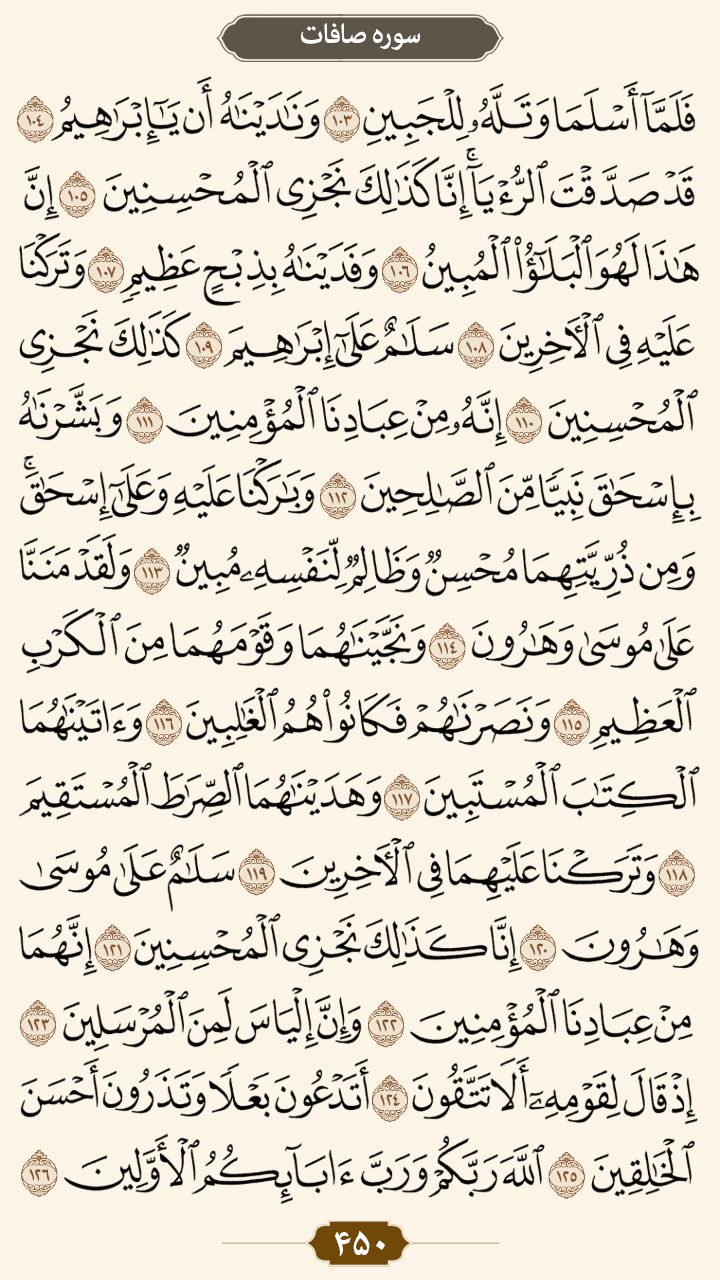 سوره صافات
فَلَمَّآ أَسۡلَمَا وَتَلَّهُۥ لِلۡجَبِينِ ١٠٣ وَنَٰدَيۡنَٰهُ أَن يَٰٓإِبۡرَٰهِيمُ ١٠٤
قَدۡ صَدَّقۡتَ ٱلرُّءۡيَآۚ إِنَّا كَذَٰلِكَ نَجۡزِى ٱلۡمُحۡسِنِينَ ١٠٥ إِنَّ
هَٰذَا لَهُوَ ٱلۡبَلَٰٓؤُاْ ٱلۡمُبِينُ ١٠٦ وَفَدَيۡنَٰهُ بِذِبۡحٍ عَظِيمٖ ١٠٧ وَتَرَكۡنَا
عَلَيۡهِ فِى ٱلۡأٓخِرِينَ ١٠٨ سَلَٰمٌ عَلَىٰٓ إِبۡرَٰهِيمَ ١٠٩ كَذَٰلِكَ نَجۡزِى
ٱلۡمُحۡسِنِينَ ١١٠ إِنَّهُۥ مِنۡ عِبَادِنَا ٱلۡمُؤۡمِنِينَ ١١١ وَبَشَّرۡنَٰهُ
بِإِسۡحَٰقَ نَبِيّٗا مِّنَ ٱلصَّٰلِحِينَ ١١٢ وَبَٰرَكۡنَا عَلَيۡهِ وَعَلَىٰٓ إِسۡحَٰقَۚ
وَمِن ذُرِّيَّتِهِمَا مُحۡسِنٞ وَظَالِمٞ لِّنَفۡسِهِۦ مُبِينٞ ١١٣ وَلَقَدۡ مَنَنَّا
عَلَىٰ مُوسَىٰ وَهَٰرُونَ ١١٤ وَنَجَّيۡنَٰهُمَا وَقَوۡمَهُمَا مِنَ ٱلۡكَرۡبِ
ٱلۡعَظِيمِ ١١٥ وَنَصَرۡنَٰهُمۡ فَكَانُواْ هُمُ ٱلۡغَٰلِبِينَ ١١٦ وَءَاتَيۡنَٰهُمَا
ٱلۡكِتَٰبَ ٱلۡمُسۡتَبِينَ ١١٧ وَهَدَيۡنَٰهُمَا ٱلصِّرَٰطَ ٱلۡمُسۡتَقِيمَ
١١٨ وَتَرَكۡنَا عَلَيۡهِمَا فِى ٱلۡأٓخِرِينَ ١١٩ سَلَٰمٌ عَلَىٰ مُوسَىٰ
وَهَٰرُونَ ١٢٠ إِنَّا كَذَٰلِكَ نَجۡزِى ٱلۡمُحۡسِنِينَ ١٢١ إِنَّهُمَا
مِنۡ عِبَادِنَا ٱلۡمُؤۡمِنِينَ ١٢٢ وَإِنَّ إِلۡيَاسَ لَمِنَ ٱلۡمُرۡسَلِينَ ١٢٣
إِذۡ قَالَ لِقَوۡمِهِۦٓ أَلَا تَتَّقُونَ ١٢٤ أَتَدۡعُونَ بَعۡلٗا وَتَذَرُونَ أَحۡسَنَ
ٱلۡخَٰلِقِينَ ١٢٥ ٱللَّهَ رَبَّكُمۡ وَرَبَّ ءَابَآئِكُمُ ٱلۡأَوَّلِينَ ١٢٦
۴۵۰